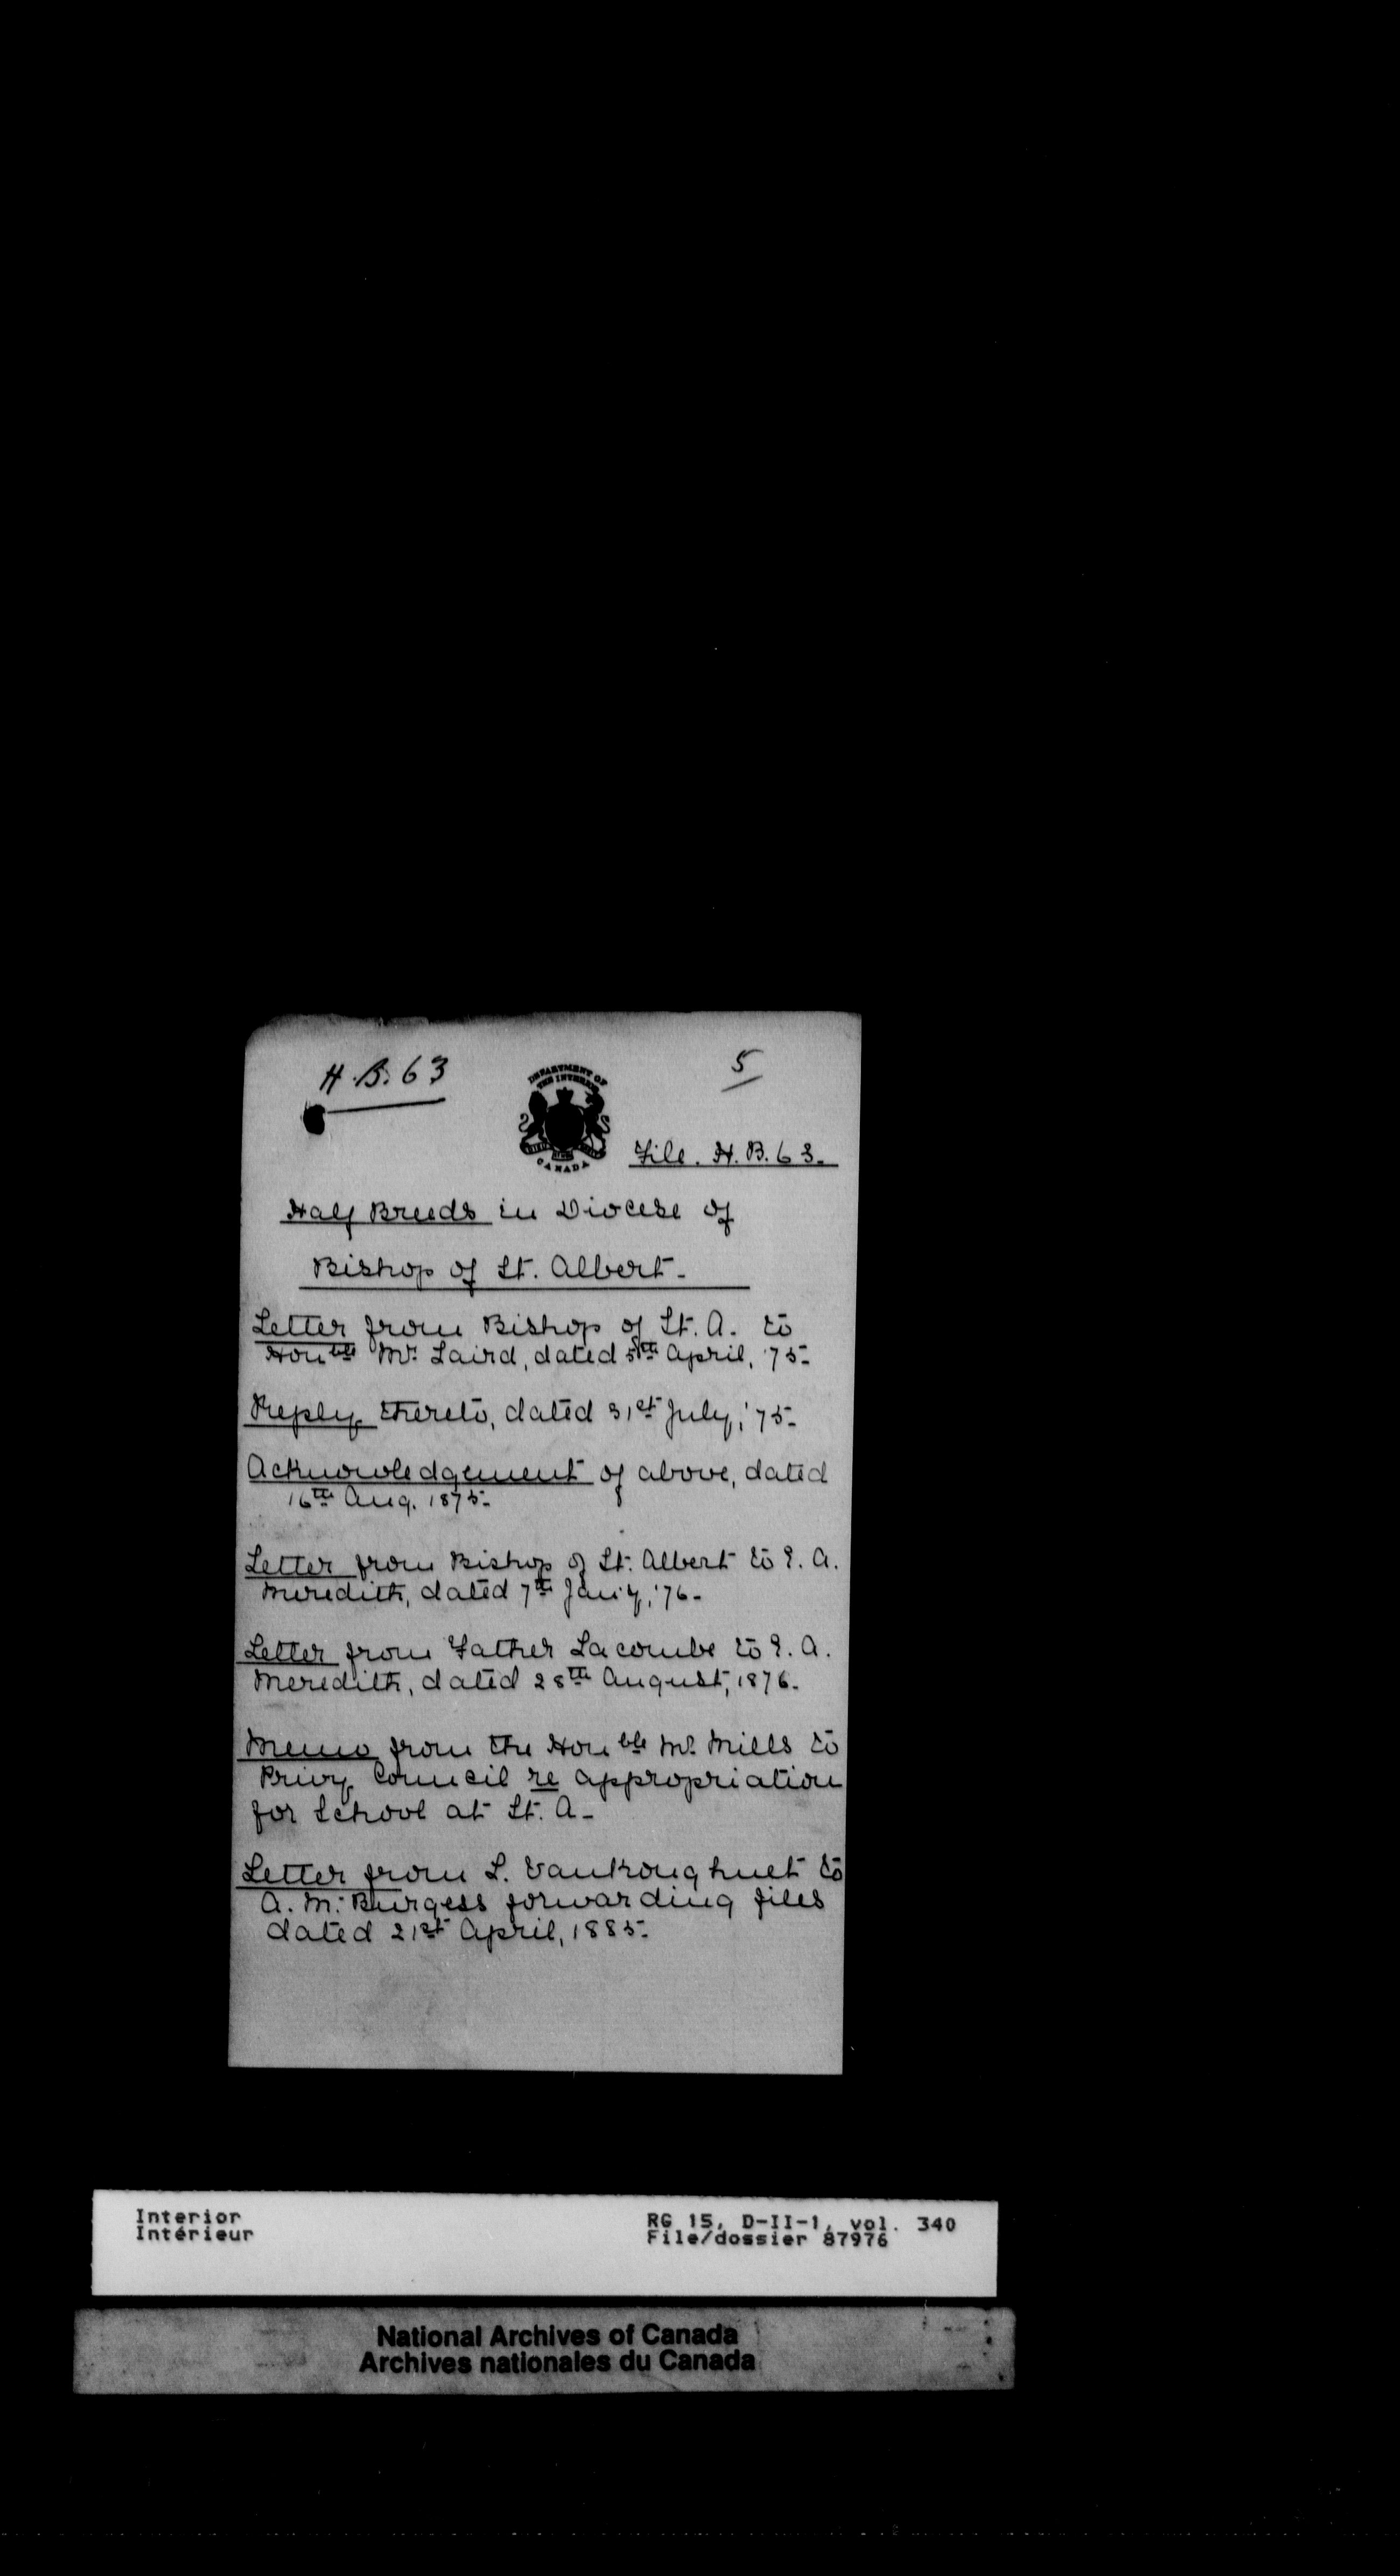 H.B. 63
5
DEPARTMENT OF
THE INTERIOR
CANADA
File. H.B. 63.
Half Breeds in Diocese of
Bishop of St. Albert.
Letter from Bishop of St. A. to
Honble Mr. Laird, dated 5th April, '75.
Reply thereto, dated 31st July, '75.
Acknowledgement of above, dated
16th Aug. 1875.
Letter from Bishop of St. Albert to E. A.
Meredith, dated 7th Jan'y, '76.
Letter from Father Lacombe to E. A.
Meredith, dated 28th August, 1876.
Memo from the Honble Mr. Mills to
Privy Council re appropriation
for School at St. A.
Letter from L. Vankoughnet to
A. M. Burgess forwarding files
dated 21st April, 1885.
Interior
Intérieur
RG 15, D-II-1, vol. 340
File/dossier 87976
National Archives of Canada
Archives nationales du Canada